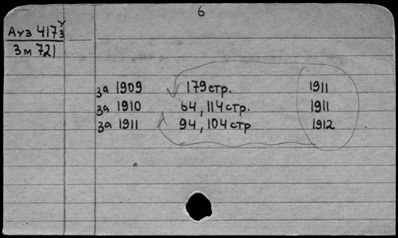 6
Ауз 417з
У
Зм 721
за 1909 179 стр. 1911
за 1910 64, 114 стр. 1911
за 1911 94, 104 стр 1912